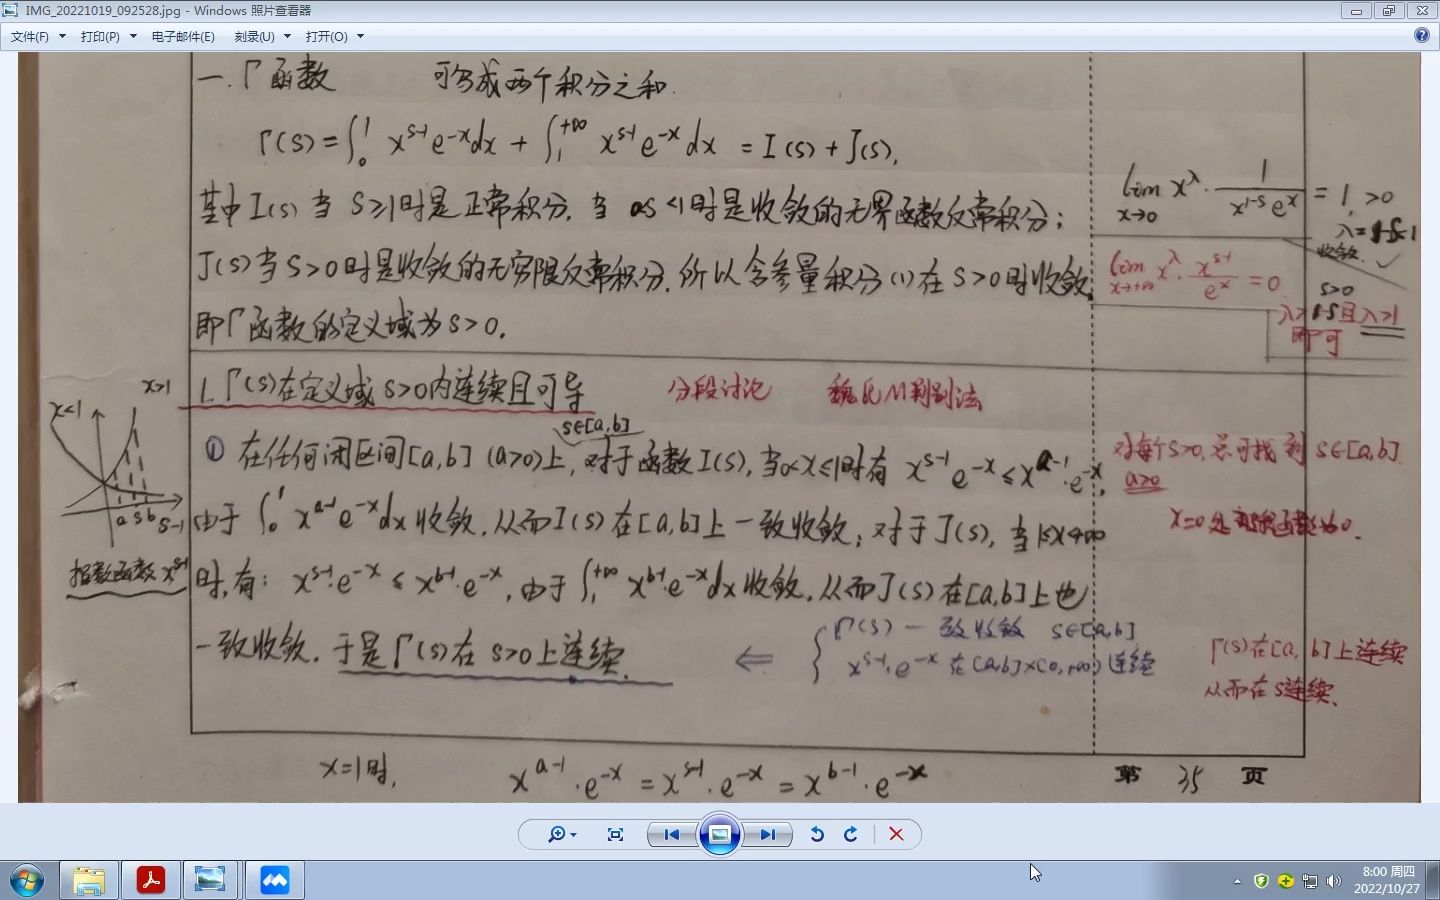 IMG_20221019_092528.jpg - Windows 照片查看器
文件(F) 打印(P) 电子邮件(E) 刻录(U) 打开(O)
一. Γ函数 可写成两个积分之和.
Γ(s)=∫₀¹ x^{s-1}e^{-x}dx + ∫₁^{+∞} x^{s-1}e^{-x}dx = I(s)+J(s),
其中I(s)当 s≥1时是正常积分, 当 0<s<1时是收敛的无界函数反常积分;
J(s)当s>0时是收敛的无穷限反常积分. 所以含参量积分(1)在s>0时收敛
即Γ函数的定义域为s>0.
lim x→0 x^λ · 1/(x^{1-s}e^x) = 1, >0
λ=1-s<1
收敛 ✓
lim x→+∞ x^λ · x^{s-1}/e^x = 0
s>0
λ>1-s且λ>1
即可
1. Γ(s)在定义域s>0内连续且可导 分段讨论 魏氏M判别法
s∈[a,b]
① 在任何闭区间[a,b] (a>0)上, 对于函数I(s), 当0<x≤1时有 x^{s-1}e^{-x}≤x^{a-1}·e^{-x},
由于 ∫₀¹ x^{a-1}e^{-x}dx收敛, 从而I(s)在[a,b]上一致收敛; 对于J(s), 当1≤x<+∞
时, 有: x^{s-1}·e^{-x} ≤ x^{b-1}·e^{-x}, 由于∫₁^{+∞} x^{b-1}·e^{-x}dx收敛, 从而J(s)在[a,b]上也
一致收敛. 于是Γ(s)在 s>0上连续.
⇐ { Γ(s)一致收敛 s∈[a,b]
x^{s-1}·e^{-x}在[a,b]×(0,+∞)连续
x<1 x>1
a s b s-1
指数函数x^{s-1}
对每个s>0, 总可找到 s∈[a,b].
a>0
Γ(s)在[a,b]上连续
从而在s连续.
x=1时, x^{a-1}·e^{-x} = x^{s-1}·e^{-x} = x^{b-1}·e^{-x}
第 35 页
8:00 周四
2022/10/27